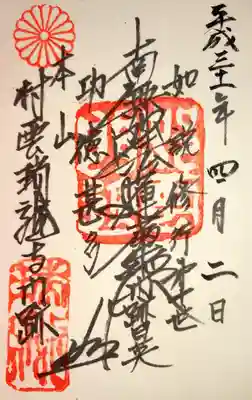 平成三十一年 四月 二日
如説修行
南無妙法蓮華経 門跡日英
功徳甚多
本山
村雲瑞龍寺門跡